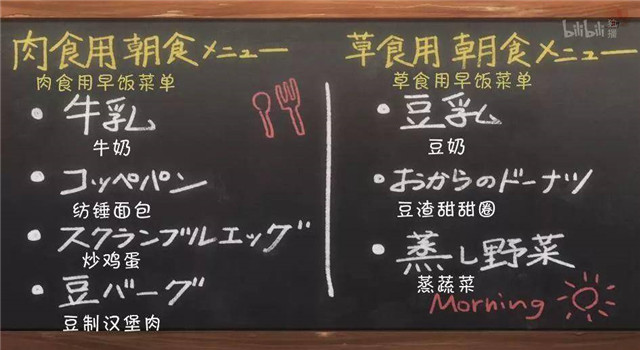 肉食用朝食メニュー
肉食用早饭菜单
・牛乳
牛奶
・コッペパン
纺锤面包
・スクランブルエッグ
炒鸡蛋
・豆バーグ
豆制汉堡肉
bilibili 独播
草食用朝食メニュー
草食用早饭菜单
・豆乳
豆奶
・おからのドーナツ
豆渣甜甜圈
・蒸し野菜
蒸蔬菜
Morning